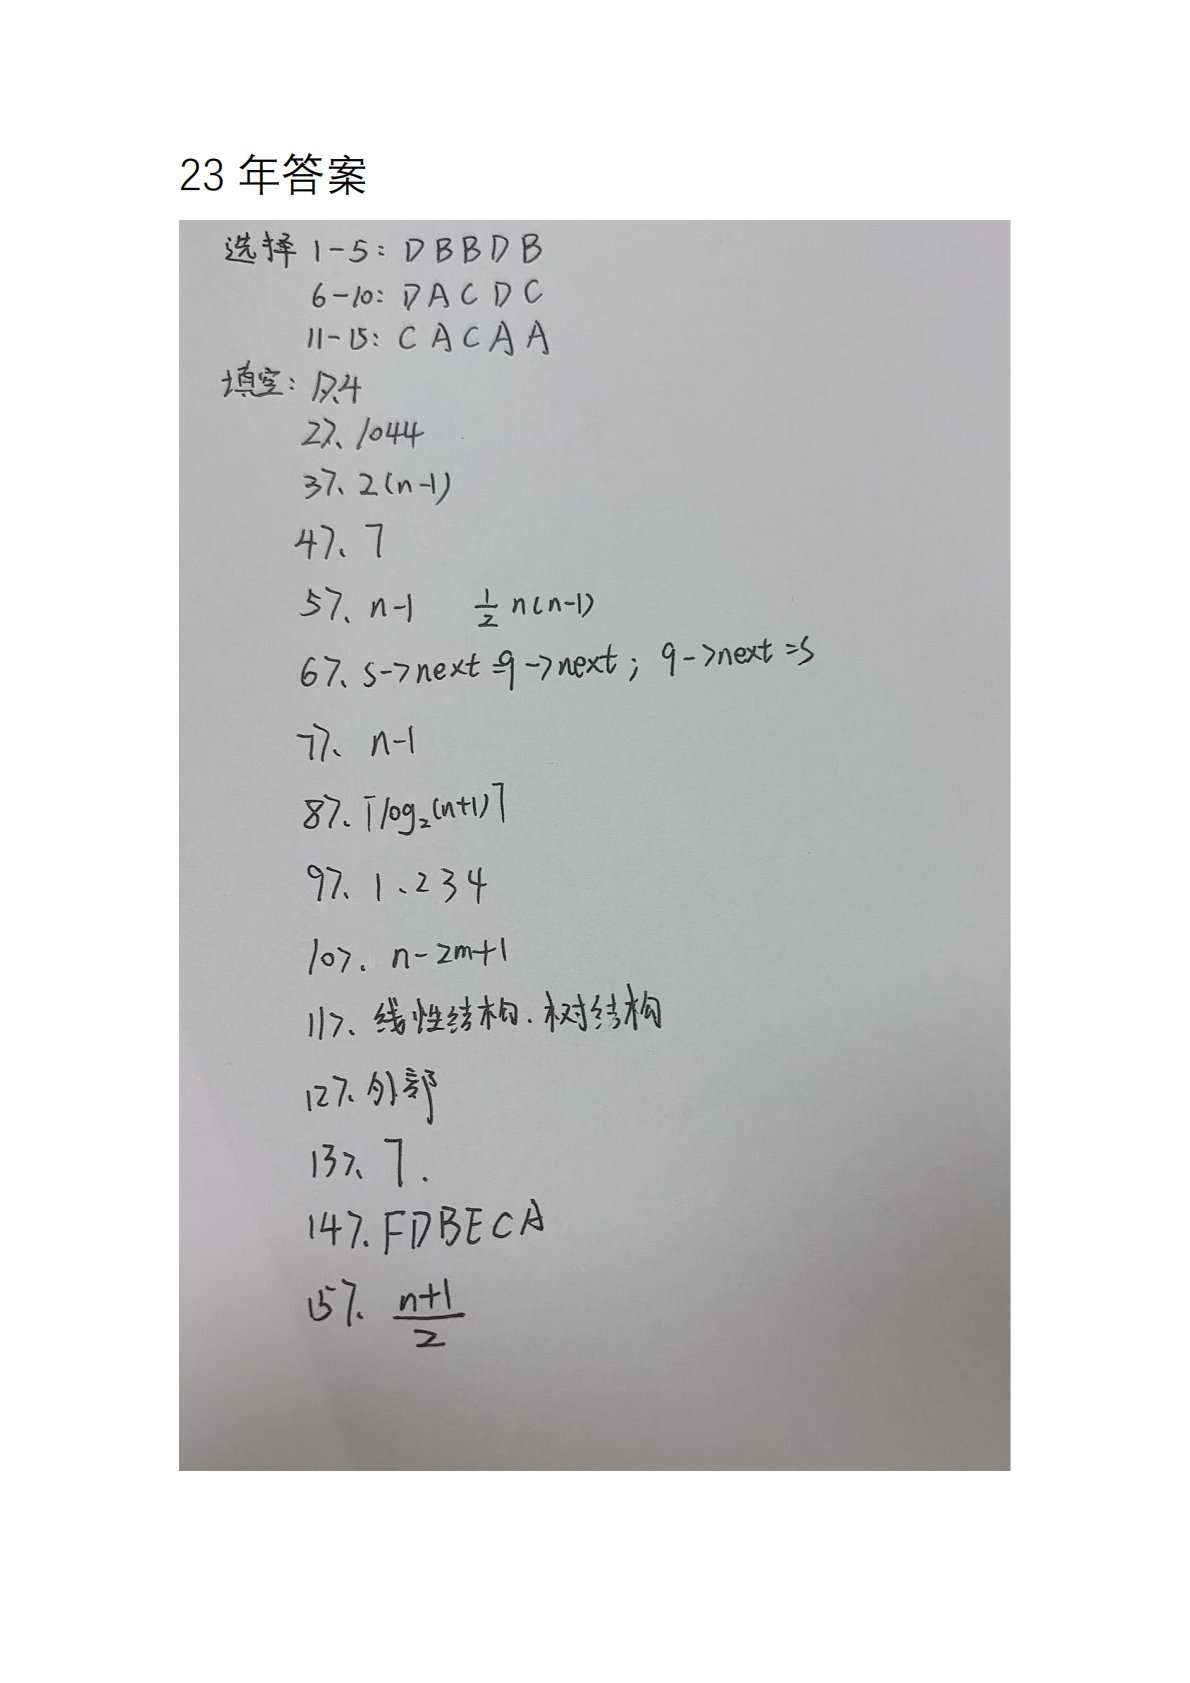 23 年答案
选择 1-5: D B B D B
6-10: D A C D C
11-15: C A C A A
填空: 1>、4
2>、1044
3>、2(n-1)
4>、7
5>、n-1 1/2 n(n-1)
6>、s->next=q->next; q->next=s
7>、n-1
8>、⌈log₂(n+1)⌉
9>、1、2 3 4
10>、n-2m+1
11>、线性结构、树结构
12>、外部
13>、7.
14>、FDBECA
15>、n+1/2